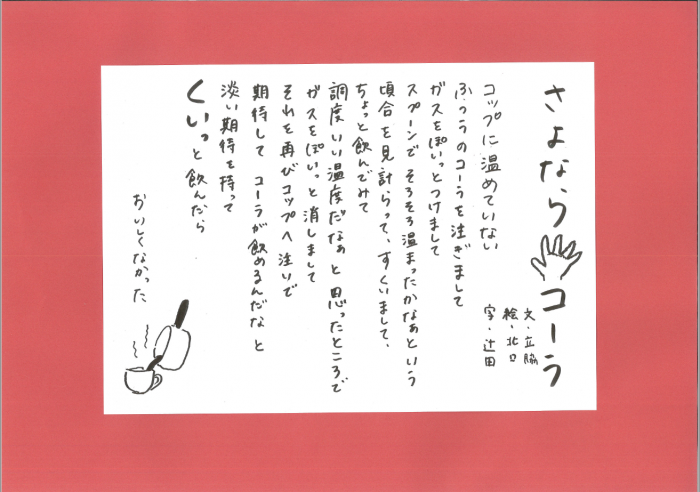 さよなら コーラ
文・立脇
絵・北口
字・辻田
コップに温めていない
ふつうのコーラを注ぎまして
ガスをぽいっとつけまして
スプーンで そろそろ温まったかなぁという
頃合を見計らって、すくいまして、
ちょっと飲んでみて
調度いい温度だなぁと 思ったところで
ガスをぽいっと消しまして
それを再びコップへ注いで
期待して コーラが飲めるんだなと
淡い期待を持って
くいっと飲んだら
おいしくなかった